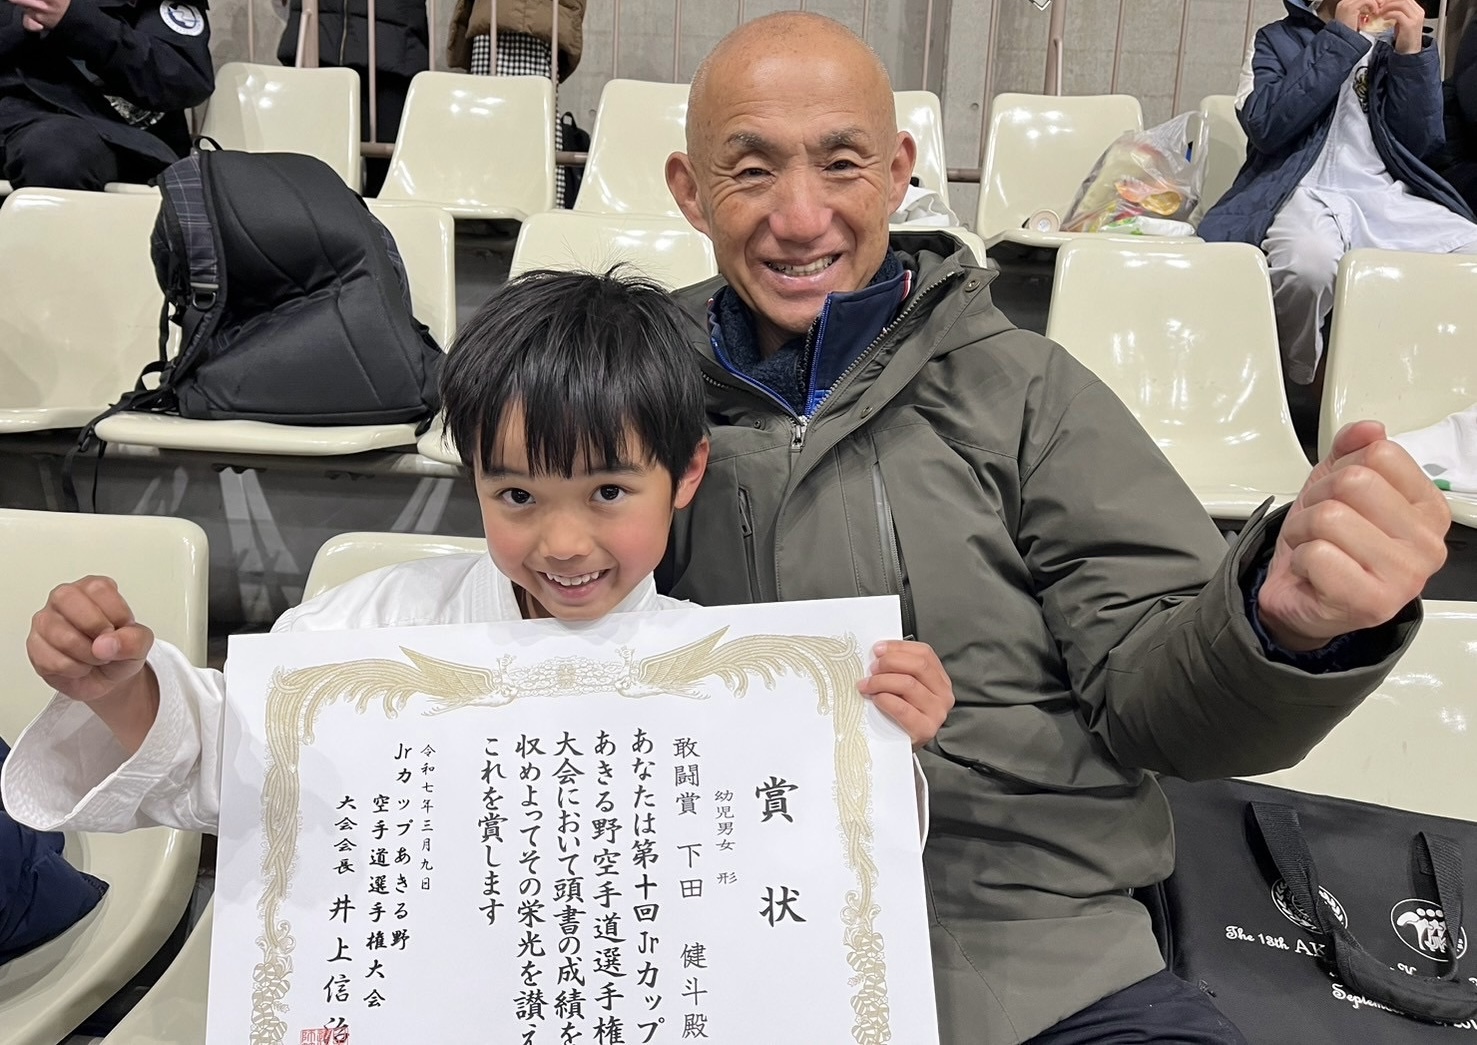 賞状
幼児男女 形
敢闘賞 下田 健斗殿
あなたは第十回Jrカップ
あきる野空手道選手権
大会において頭書の成績を
収めよってその栄光を讃え
これを賞します
令和七年三月九日
Jrカップあきる野
空手道選手権大会
大会会長 井上信治
The 13th AK
Septem